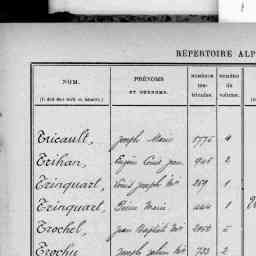 RÉPERTOIRE ALP
NOM. PRÉNOMS ET SURNOMS. NUMÉROS MATRICULES. NUMÉRO du volume.
Tricault, Joseph Marie 1776 4
Trihan, Eugène Louis Jean 945 2
Trinquart, Louis Joseph Mie 259 1
Trinquart, Pierre Marie 444 1
Trochel, Jean Baptiste Mie 2052 5
Trochu Joseph Julien Mie 733 2